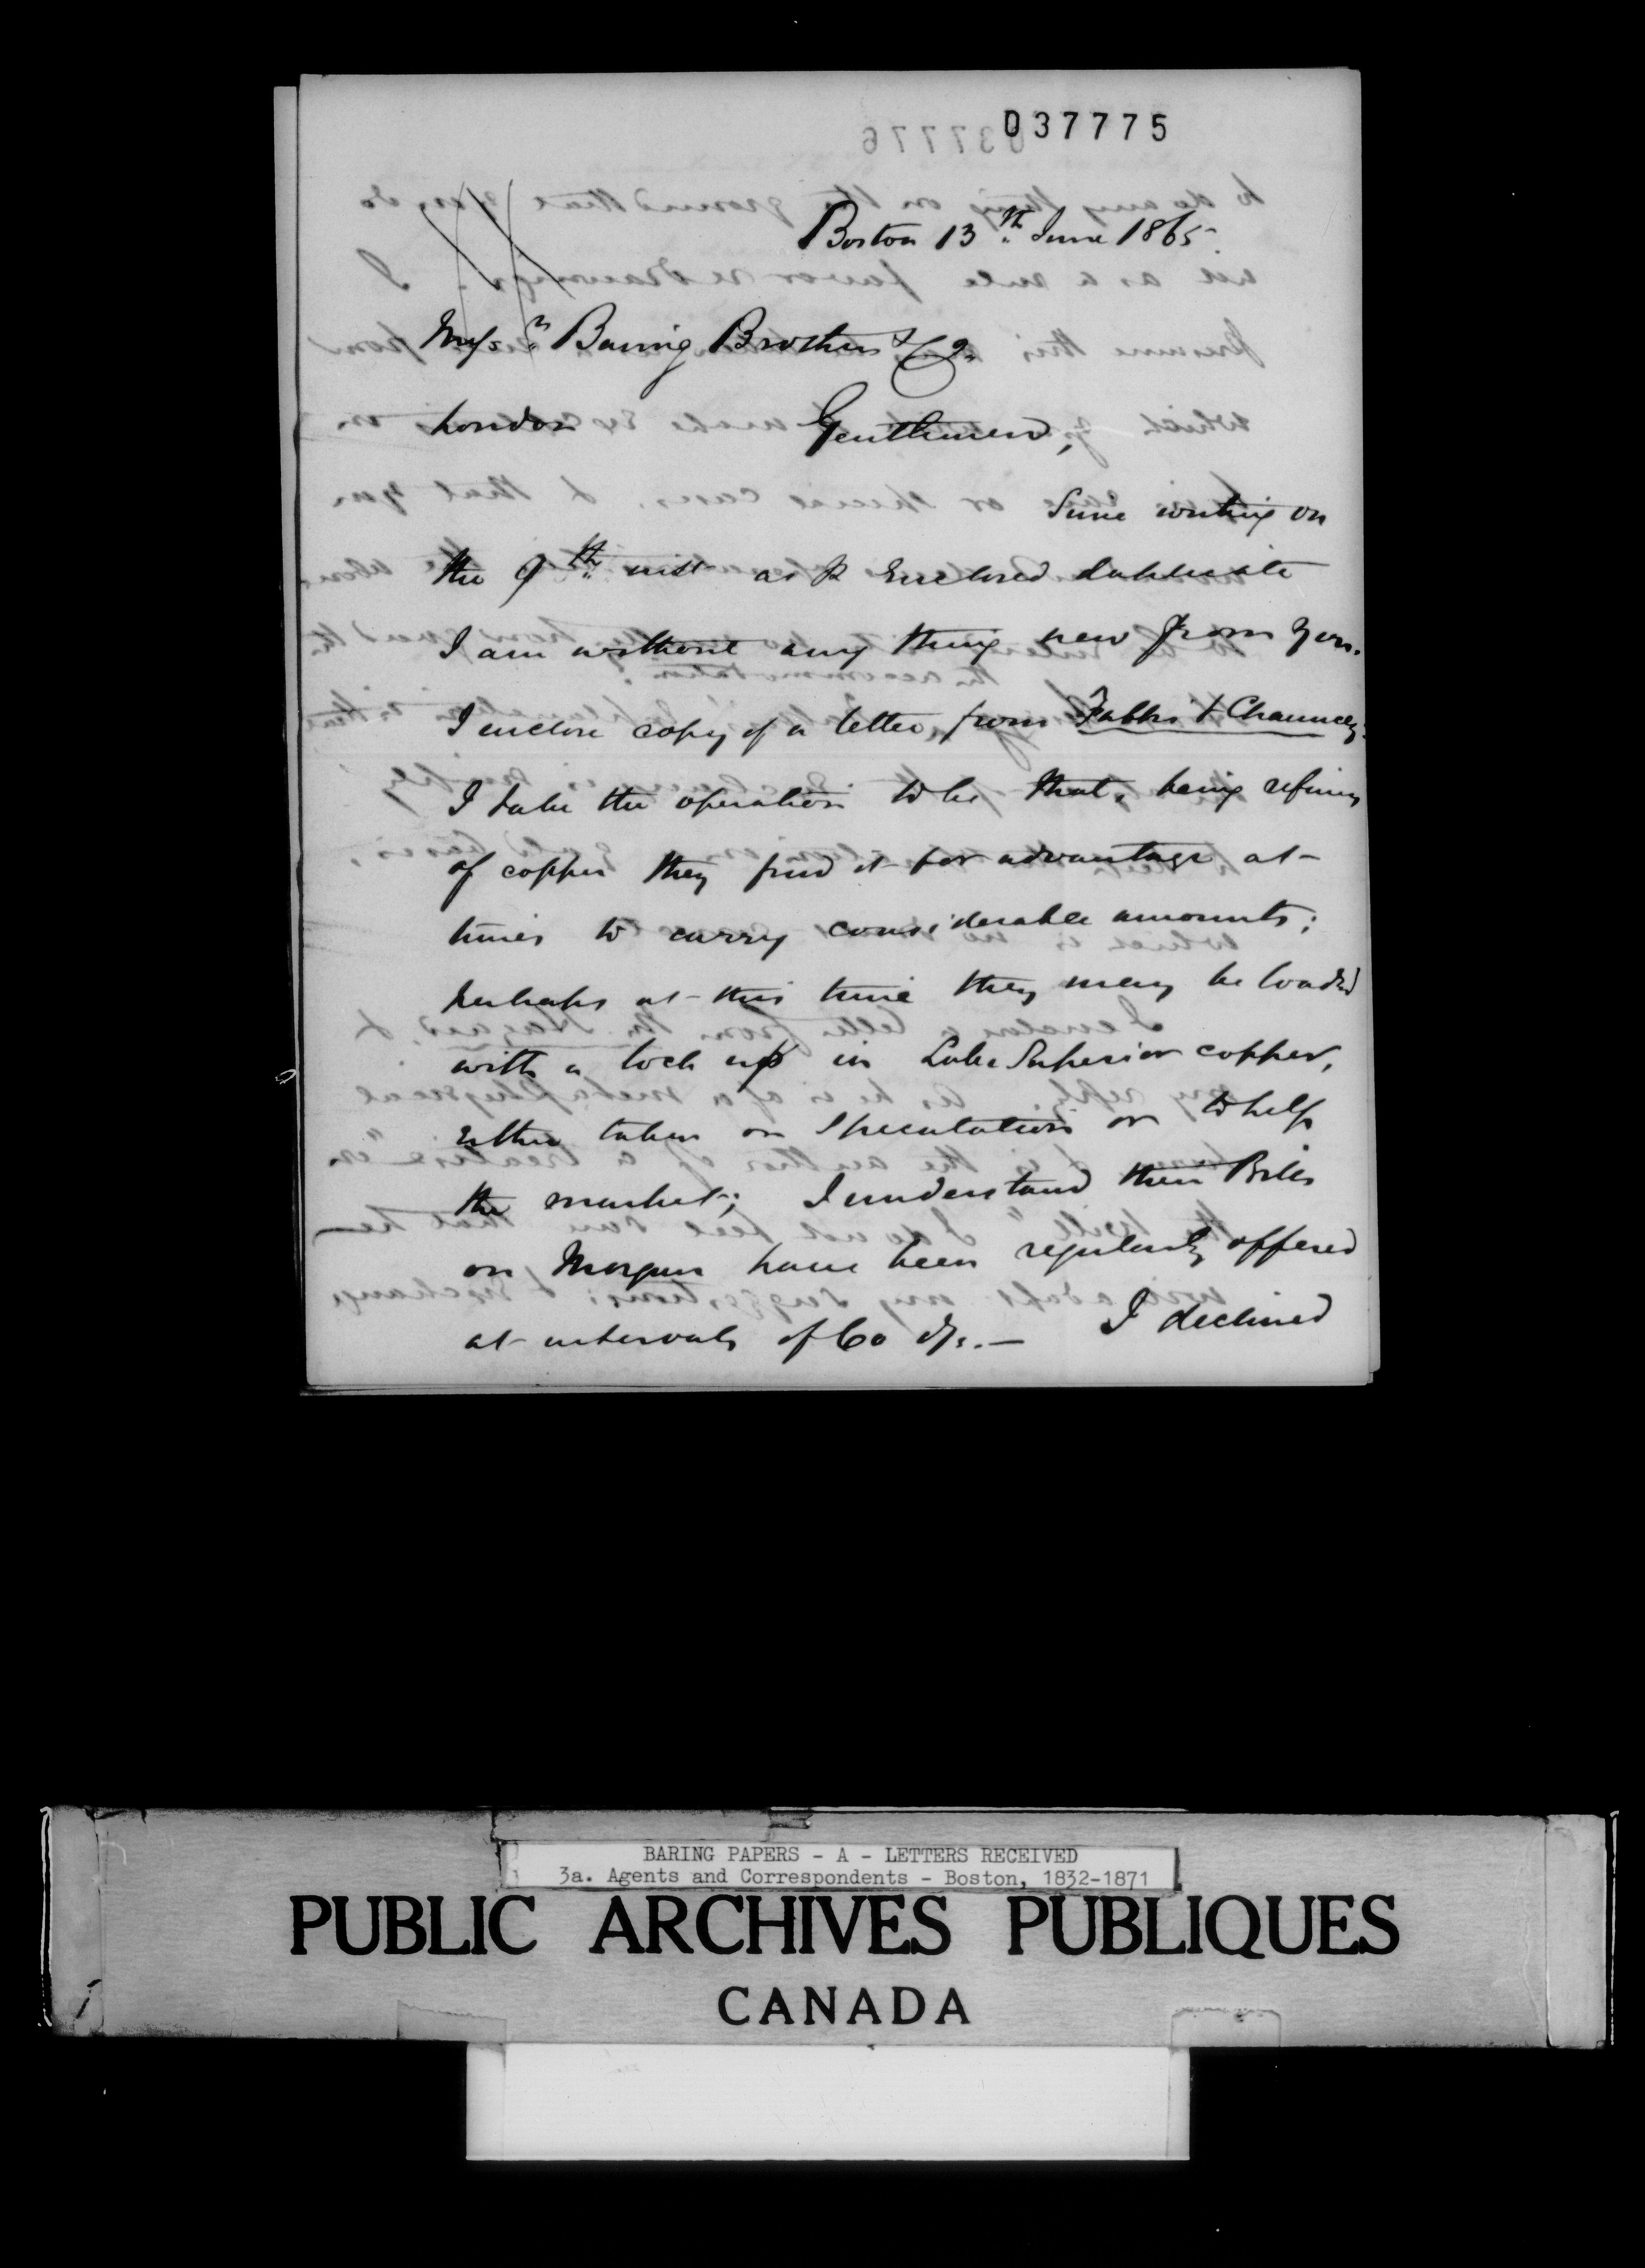 037775
Boston 13th June 1865.
Messrs Baring Brothers & Co.
London Gentlemen,
Since writing on
the 9th inst as p Enclosed duplicate
I am without any thing new from you.
I enclose copy of a letter from Fabbri & Chauncey.
I take the operation to be that, being refiners
of copper they find it for advantage at
times to carry considerable amounts;
perhaps at this time they may be loaded
with a lock up in Lake Superior copper,
either taken on Speculation or to help
the market; I understand their Bills
on Morgan have been regularly offered
at intervals of 60 d/s. — I declined
BARING PAPERS - A - LETTERS RECEIVED
3a. Agents and Correspondents - Boston, 1832-1871
PUBLIC ARCHIVES PUBLIQUES
CANADA